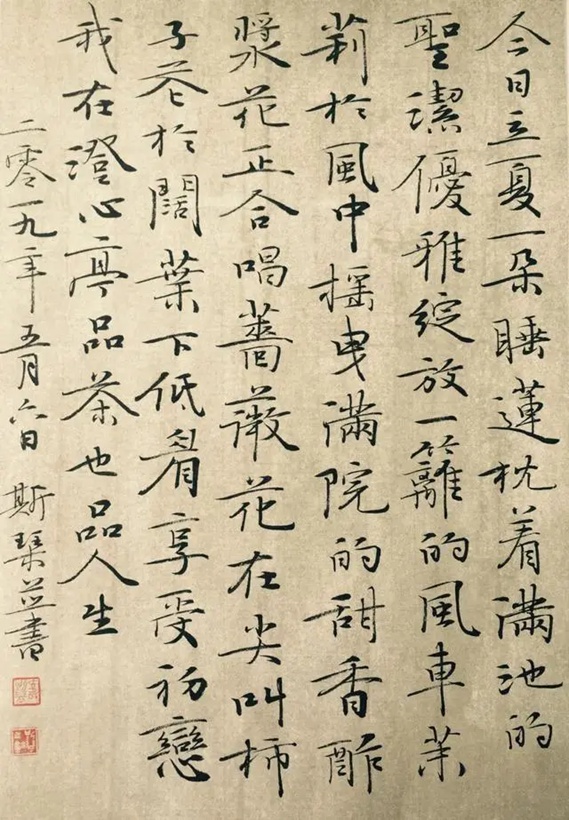 今日立夏一朵睡蓮枕着滿池的
聖潔優雅綻放一籬的風車茉
莉於風中搖曳滿院的甜香酢
漿花正合唱薔薇花在尖叫柿
子花於闊葉下低眉享受初戀
我在澄心亭品茶也品人生
二零一九年五月六日 斯琹並書